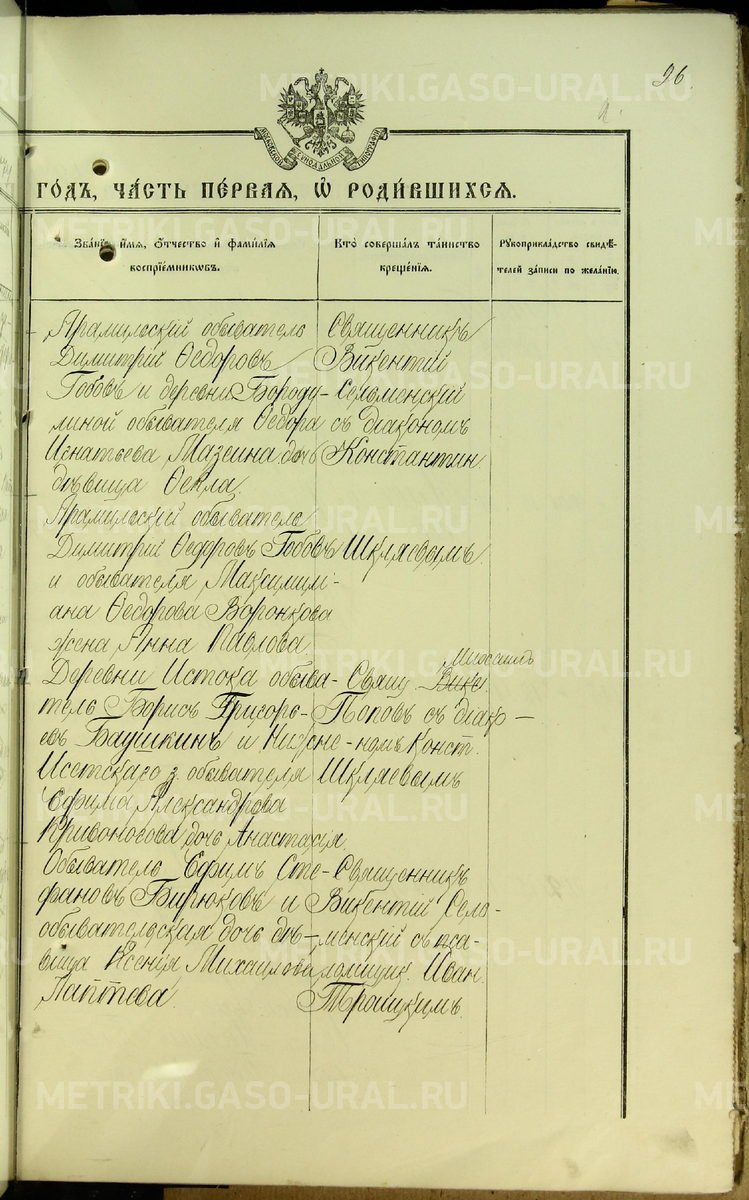 96
МОСКОВСКОЙ СѴНОДАЛЬНОЙ ТИПОГРАФІИ
ГОДЪ, ЧАСТЬ ПЕРВАЯ, Ѡ РОДИВШИХСЯ.
Званіе, имя, отчество и фамилія
воспріемниковъ.
Кто совершалъ таинство
крещенія.
Рукоприкладство свидѣ-
телей записи по желанію.
Арамильскій обыватель
Димитрій Ѳеодоровъ
Гобовъ и деревни Бороду-
линой обывателя Ѳеодора
Игнатьева Мазеина дочь
дѣвица Ѳекла.
Священникъ
Викентій
Селеменскій
съ діакономъ
Константин
Шкляевымъ.
Арамильскій обыватель
Димитрій Ѳеодоровъ Гобовъ
и обывателя Максимили-
ана Ѳеодорова Воронкова
жена Анна Павлова.
Деревни Истока обыва-
тель Борисъ Григорь-
евъ Баушкинъ и Нижне-
Исетскаго з. обывателя
Ефима Александрова
Кривоногова дочь Анастасія.
Михаилъ
Свящ. Вике
Поповъ съ діако-
номъ Конст.
Шкляевымъ
Обыватель Ефимъ Сте-
фановъ Бирюковъ и
обывательская дочь дѣ-
вица Ксенія Михаилова
Лаптева.
Священникъ
Викентій Селе-
менскій съ пса-
ломщик. Иван.
Трошкимъ.
METRIKI.GASO-URAL.RU